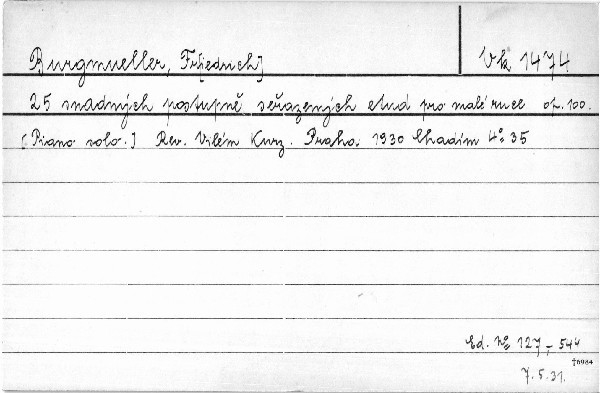 Burgmueller, Fr[iedrich] Vk 1474
25 snadných postupně seřazených etud pro malé ruce op. 100.
[Piano solo.] Rev. Vilém Kurz. Praha. 1930 Chadím 4º 35
Ed. Nº 127, - 544
76984
7. 5. 31.